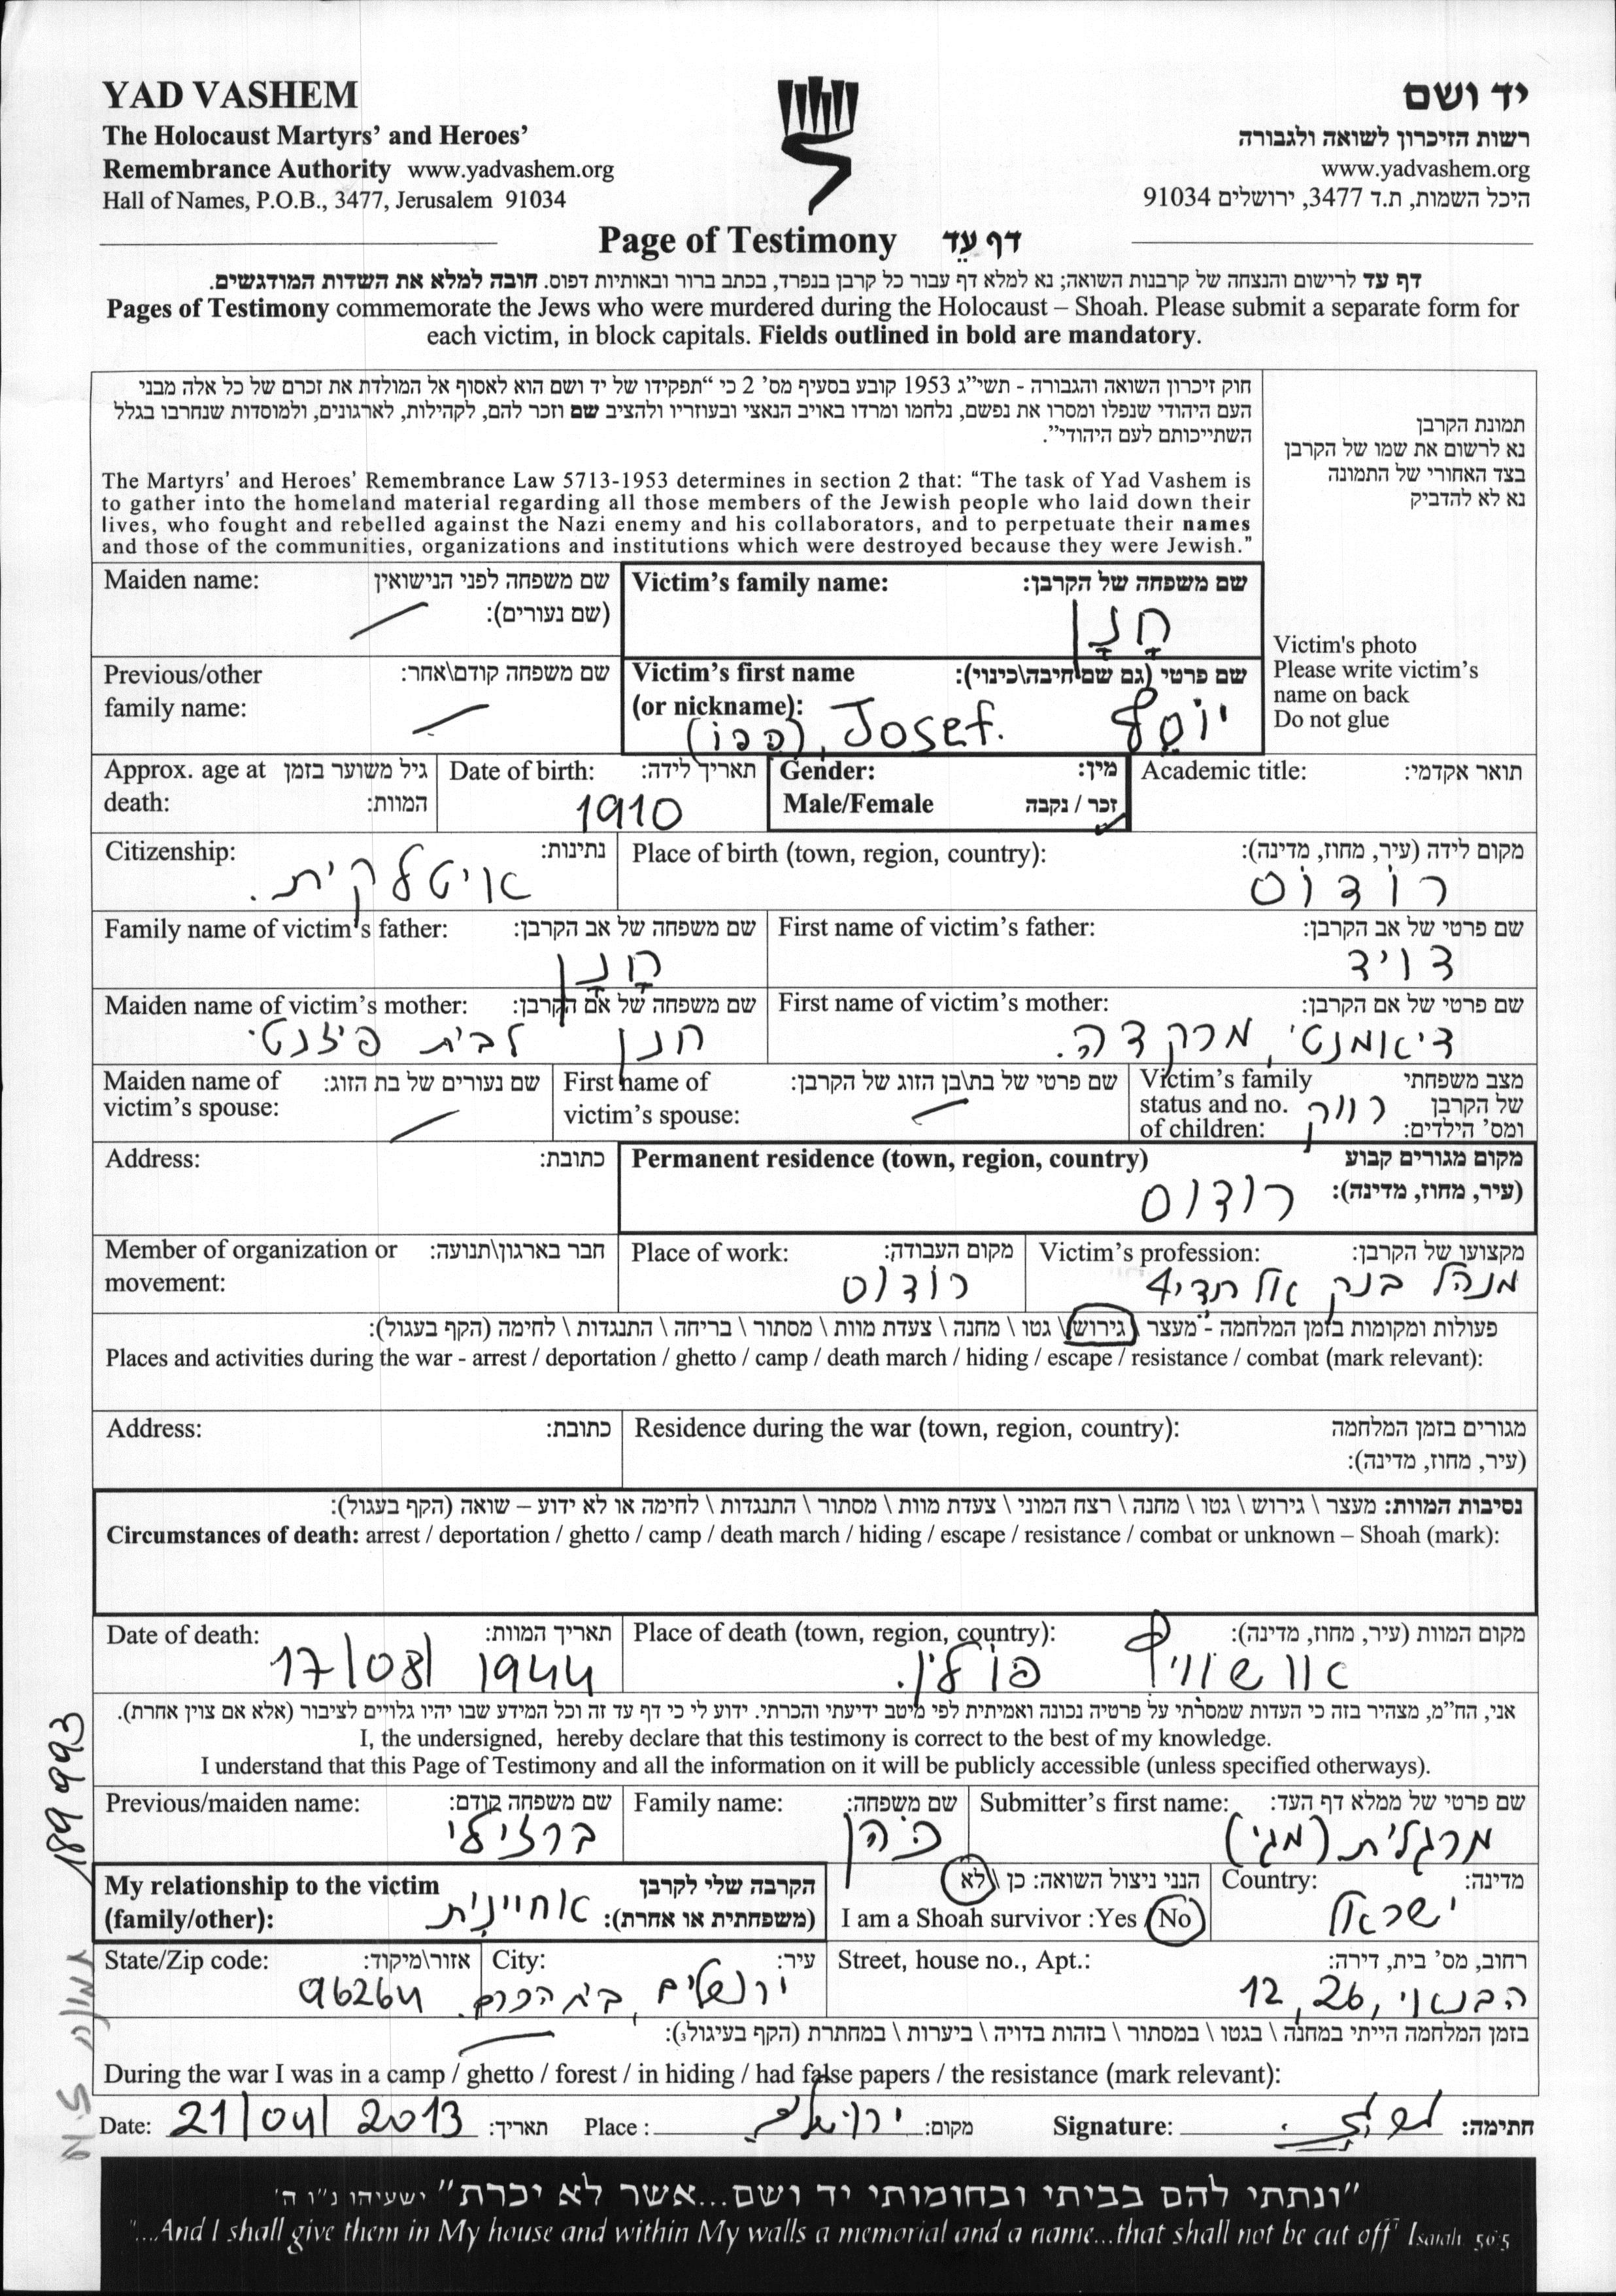 YAD VASHEM
The Holocaust Martyrs' and Heroes'
Remembrance Authority www.yadvashem.org
Hall of Names, P.O.B., 3477, Jerusalem 91034
יד ושם
רשות הזיכרון לשואה ולגבורה
www.yadvashem.org
היכל השמות, ת.ד 3477, ירושלים 91034
Page of Testimony דף עֵד
דף עד לרישום והנצחה של קרבנות השואה; נא למלא דף עבור כל קרבן בנפרד, בכתב ברור ובאותיות דפוס. חובה למלא את השדות המודגשים.
Pages of Testimony commemorate the Jews who were murdered during the Holocaust – Shoah. Please submit a separate form for
each victim, in block capitals. Fields outlined in bold are mandatory.
חוק זיכרון השואה והגבורה - תשי"ג 1953 קובע בסעיף מס' 2 כי "תפקידו של יד ושם הוא לאסוף אל המולדת את זכרם של כל אלה מבני
העם היהודי שנפלו ומסרו את נפשם, נלחמו ומרדו באויב הנאצי ובעוזריו ולהציב שם וזכר להם, לקהילות, לארגונים, ולמוסדות שנחרבו בגלל
השתייכותם לעם היהודי".
The Martyrs' and Heroes' Remembrance Law 5713-1953 determines in section 2 that: "The task of Yad Vashem is
to gather into the homeland material regarding all those members of the Jewish people who laid down their
lives, who fought and rebelled against the Nazi enemy and his collaborators, and to perpetuate their names
and those of the communities, organizations and institutions which were destroyed because they were Jewish."
תמונת הקרבן
נא לרשום את שמו של הקרבן
בצד האחורי של התמונה
נא לא להדביק
Victim's photo
Please write victim's
name on back
Do not glue
Maiden name: שם משפחה לפני הנישואין
(שם נעורים):
Victim's family name: שם משפחה של הקרבן:
חָנָן
Previous/other שם משפחה קודם\אחר:
family name:
Victim's first name שם פרטי (גם שם חיבה\כינוי):
(or nickname): (פפו), Josef. יוֹסֵף
Approx. age at גיל משוער בזמן
death: המוות:
Date of birth: תאריך לידה:
1910
Gender: מין:
Male/Female זכר / נקבה
Academic title: תואר אקדמי:
Citizenship: נתינות:
איטלקית.
Place of birth (town, region, country): מקום לידה (עיר, מחוז, מדינה):
רוֹדוֹס
Family name of victim's father: שם משפחה של אב הקרבן:
חָנָן
First name of victim's father: שם פרטי של אב הקרבן:
דויד
Maiden name of victim's mother: שם משפחה של אם הקרבן:
חנן לבית פיזנטי
First name of victim's mother: שם פרטי של אם הקרבן:
דיאמנטי, מרקדה.
Maiden name of שם נעורים של בת הזוג:
victim's spouse:
First name of שם פרטי של בת\בן הזוג של הקרבן:
victim's spouse:
Victim's family מצב משפחתי
status and no. של הקרבן
of children: ומס' הילדים:
רווק
Address: כתובת:
Permanent residence (town, region, country) מקום מגורים קבוע
(עיר, מחוז, מדינה):
רודוס
Member of organization or חבר בארגון\תנועה:
movement:
Place of work: מקום העבודה:
רוֹדוֹס
Victim's profession: מקצועו של הקרבן:
מנהל בנק אלחדיף
פעולות ומקומות בזמן המלחמה - מעצר \ גירוש \ גטו \ מחנה \ צעדת מוות \ מסתור \ בריחה \ התנגדות \ לחימה (הקף בעגול):
Places and activities during the war - arrest / deportation / ghetto / camp / death march / hiding / escape / resistance / combat (mark relevant):
Address: כתובת:
Residence during the war (town, region, country): מגורים בזמן המלחמה
(עיר, מחוז, מדינה):
נסיבות המוות: מעצר \ גירוש \ גטו \ מחנה \ רצח המוני \ צעדת מוות \ מסתור \ התנגדות \ לחימה או לא ידוע – שואה (הקף בעגול):
Circumstances of death: arrest / deportation / ghetto / camp / death march / hiding / escape / resistance / combat or unknown – Shoah (mark):
Date of death: תאריך המוות:
17/08/1944
Place of death (town, region, country): מקום המוות (עיר, מחוז, מדינה):
אוושוויץ פולין.
אני, הח"מ, מצהיר בזה כי העדות שמסרתי על פרטיה נכונה ואמיתית לפי מיטב ידיעתי והכרתי. ידוע לי כי דף עד זה וכל המידע שבו יהיו גלויים לציבור (אלא אם צוין אחרת).
I, the undersigned, hereby declare that this testimony is correct to the best of my knowledge.
I understand that this Page of Testimony and all the information on it will be publicly accessible (unless specified otherways).
Previous/maiden name: שם משפחה קודם:
ברזילי
Family name: שם משפחה:
כהן
Submitter's first name: שם פרטי של ממלא דף העד:
מרגלית (מגי)
My relationship to the victim הקרבה שלי לקרבן
(family/other): (משפחתית או אחרת):
אחיינית
הנני ניצול השואה: כן \ לא
I am a Shoah survivor :Yes / No
Country: מדינה:
ישראל
State/Zip code: אזור\מיקוד:
96264
City: עיר:
ירושלים, בית הכרם.
Street, house no., Apt.: רחוב, מס' בית, דירה:
הבנאי, 26, 12
בזמן המלחמה הייתי במחנה \ בגטו \ במסתור \ בזהות בדויה \ ביערות \ במחתרת (הקף בעיגול):
During the war I was in a camp / ghetto / forest / in hiding / had false papers / the resistance (mark relevant):
Date: 21/04/2013 תאריך: Place : ירושלים מקום: Signature: חתימה:
189993
"ונתתי להם בביתי ובחומותי יד ושם...אשר לא יכרת" ישעיהו נ"ו ה'
"...And I shall give them in My house and within My walls a memorial and a name...that shall not be cut off" Isaiah 56:5